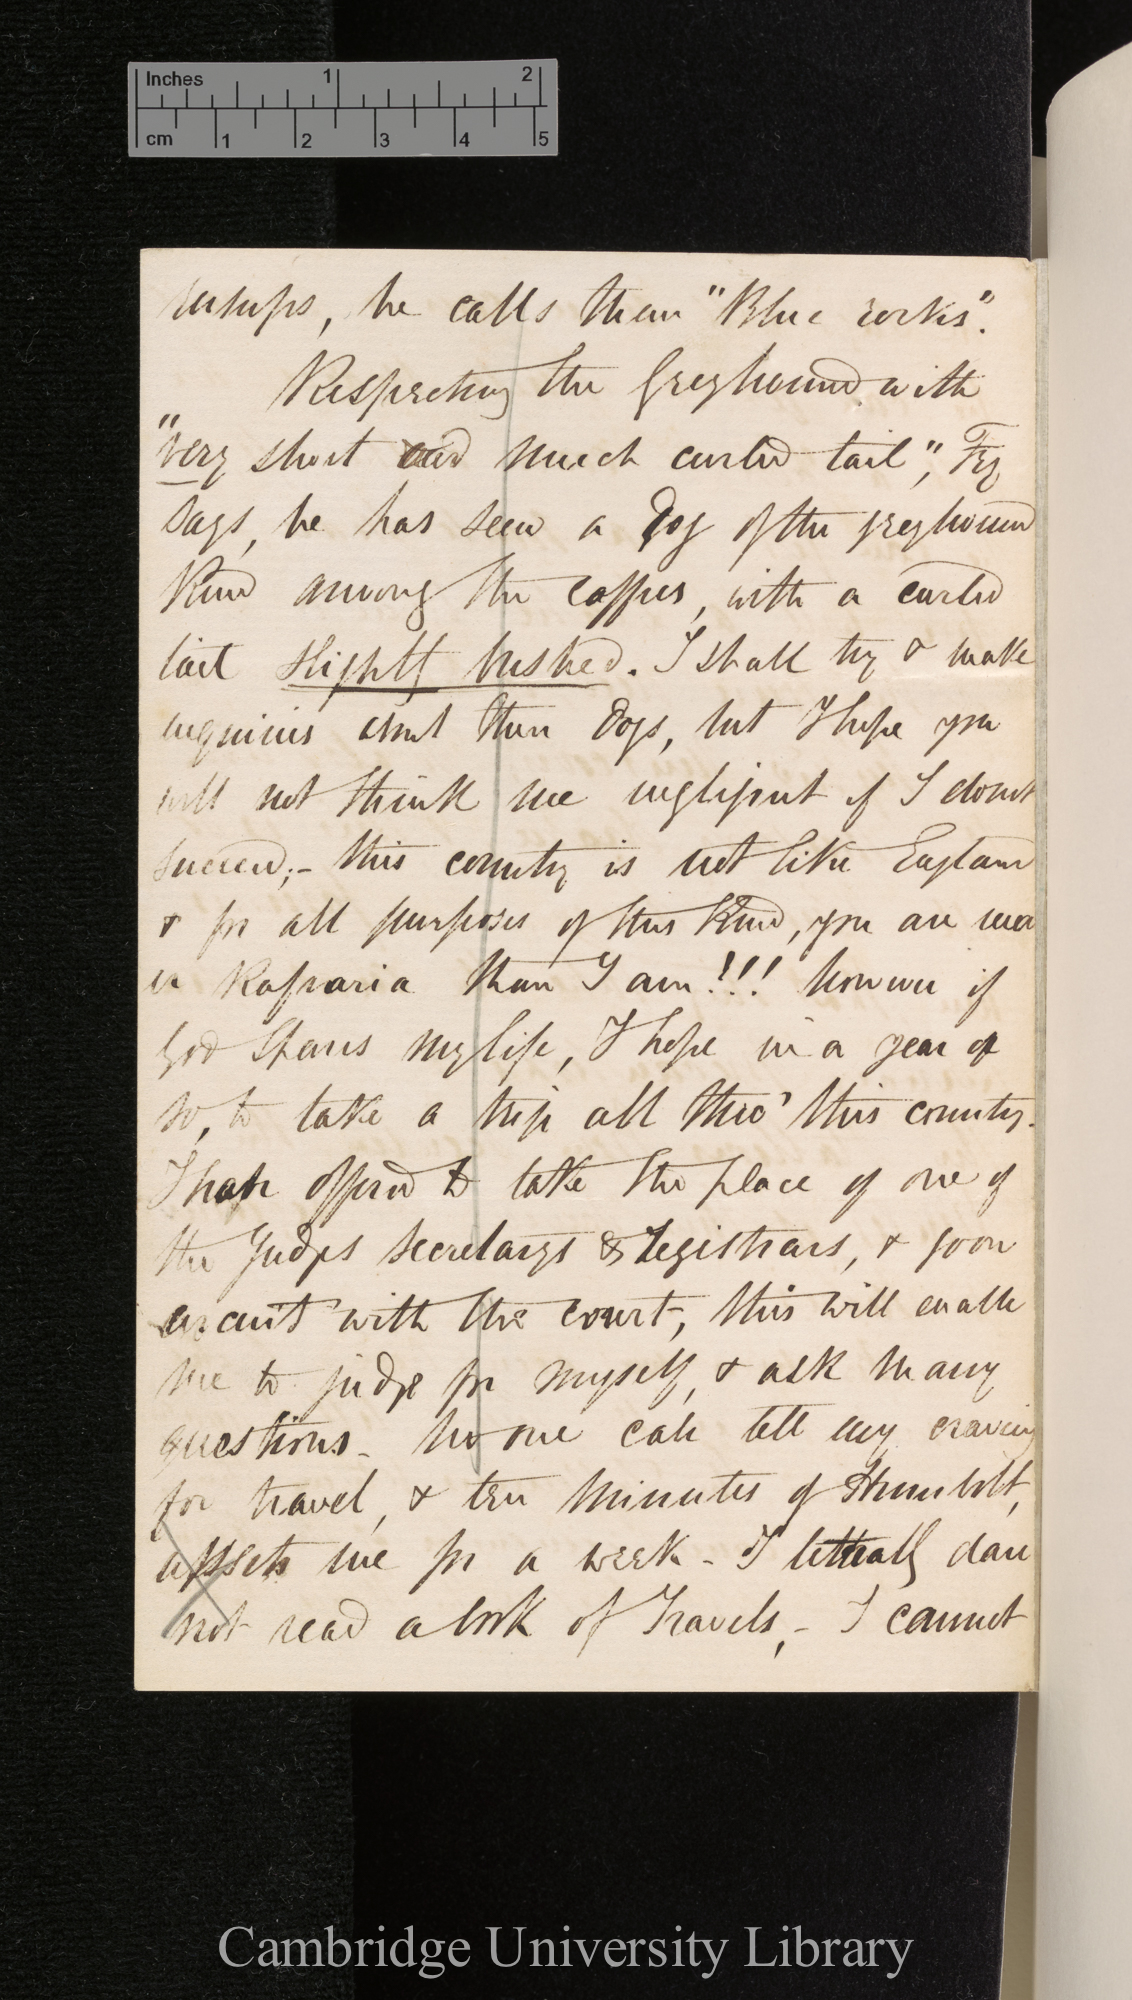 Inches 1 2
cm 1 2 3 4 5
turnips, he calls them "Blue rocks".
Respecting the Greyhound with
"very short and much curled tail", Fry
says, he has seen a Dog of the greyhound
Kind among the caffres, with a curled
tail slightly bushed. I shall try & make
inquiries about these Dogs, but I hope you
will not think me negligent if I don't
succeed;- this country is not like England
& for all purposes of this Kind, you are near
Kafraria than I am!!! however if
God spares my life, I hope in a year or
so, to take a trip all thro' this country.
I have offered to take the place of one of
the Judges secretarys & registrars, & go on
circuit with the court, this will enable
me to judge for myself, & ask many
questions- No one can tell my craving
for travel, & ten minutes of Humbolt,
upsets me for a week- I litterally dare
not read a book of Travels,- I cannot
Cambridge University Library